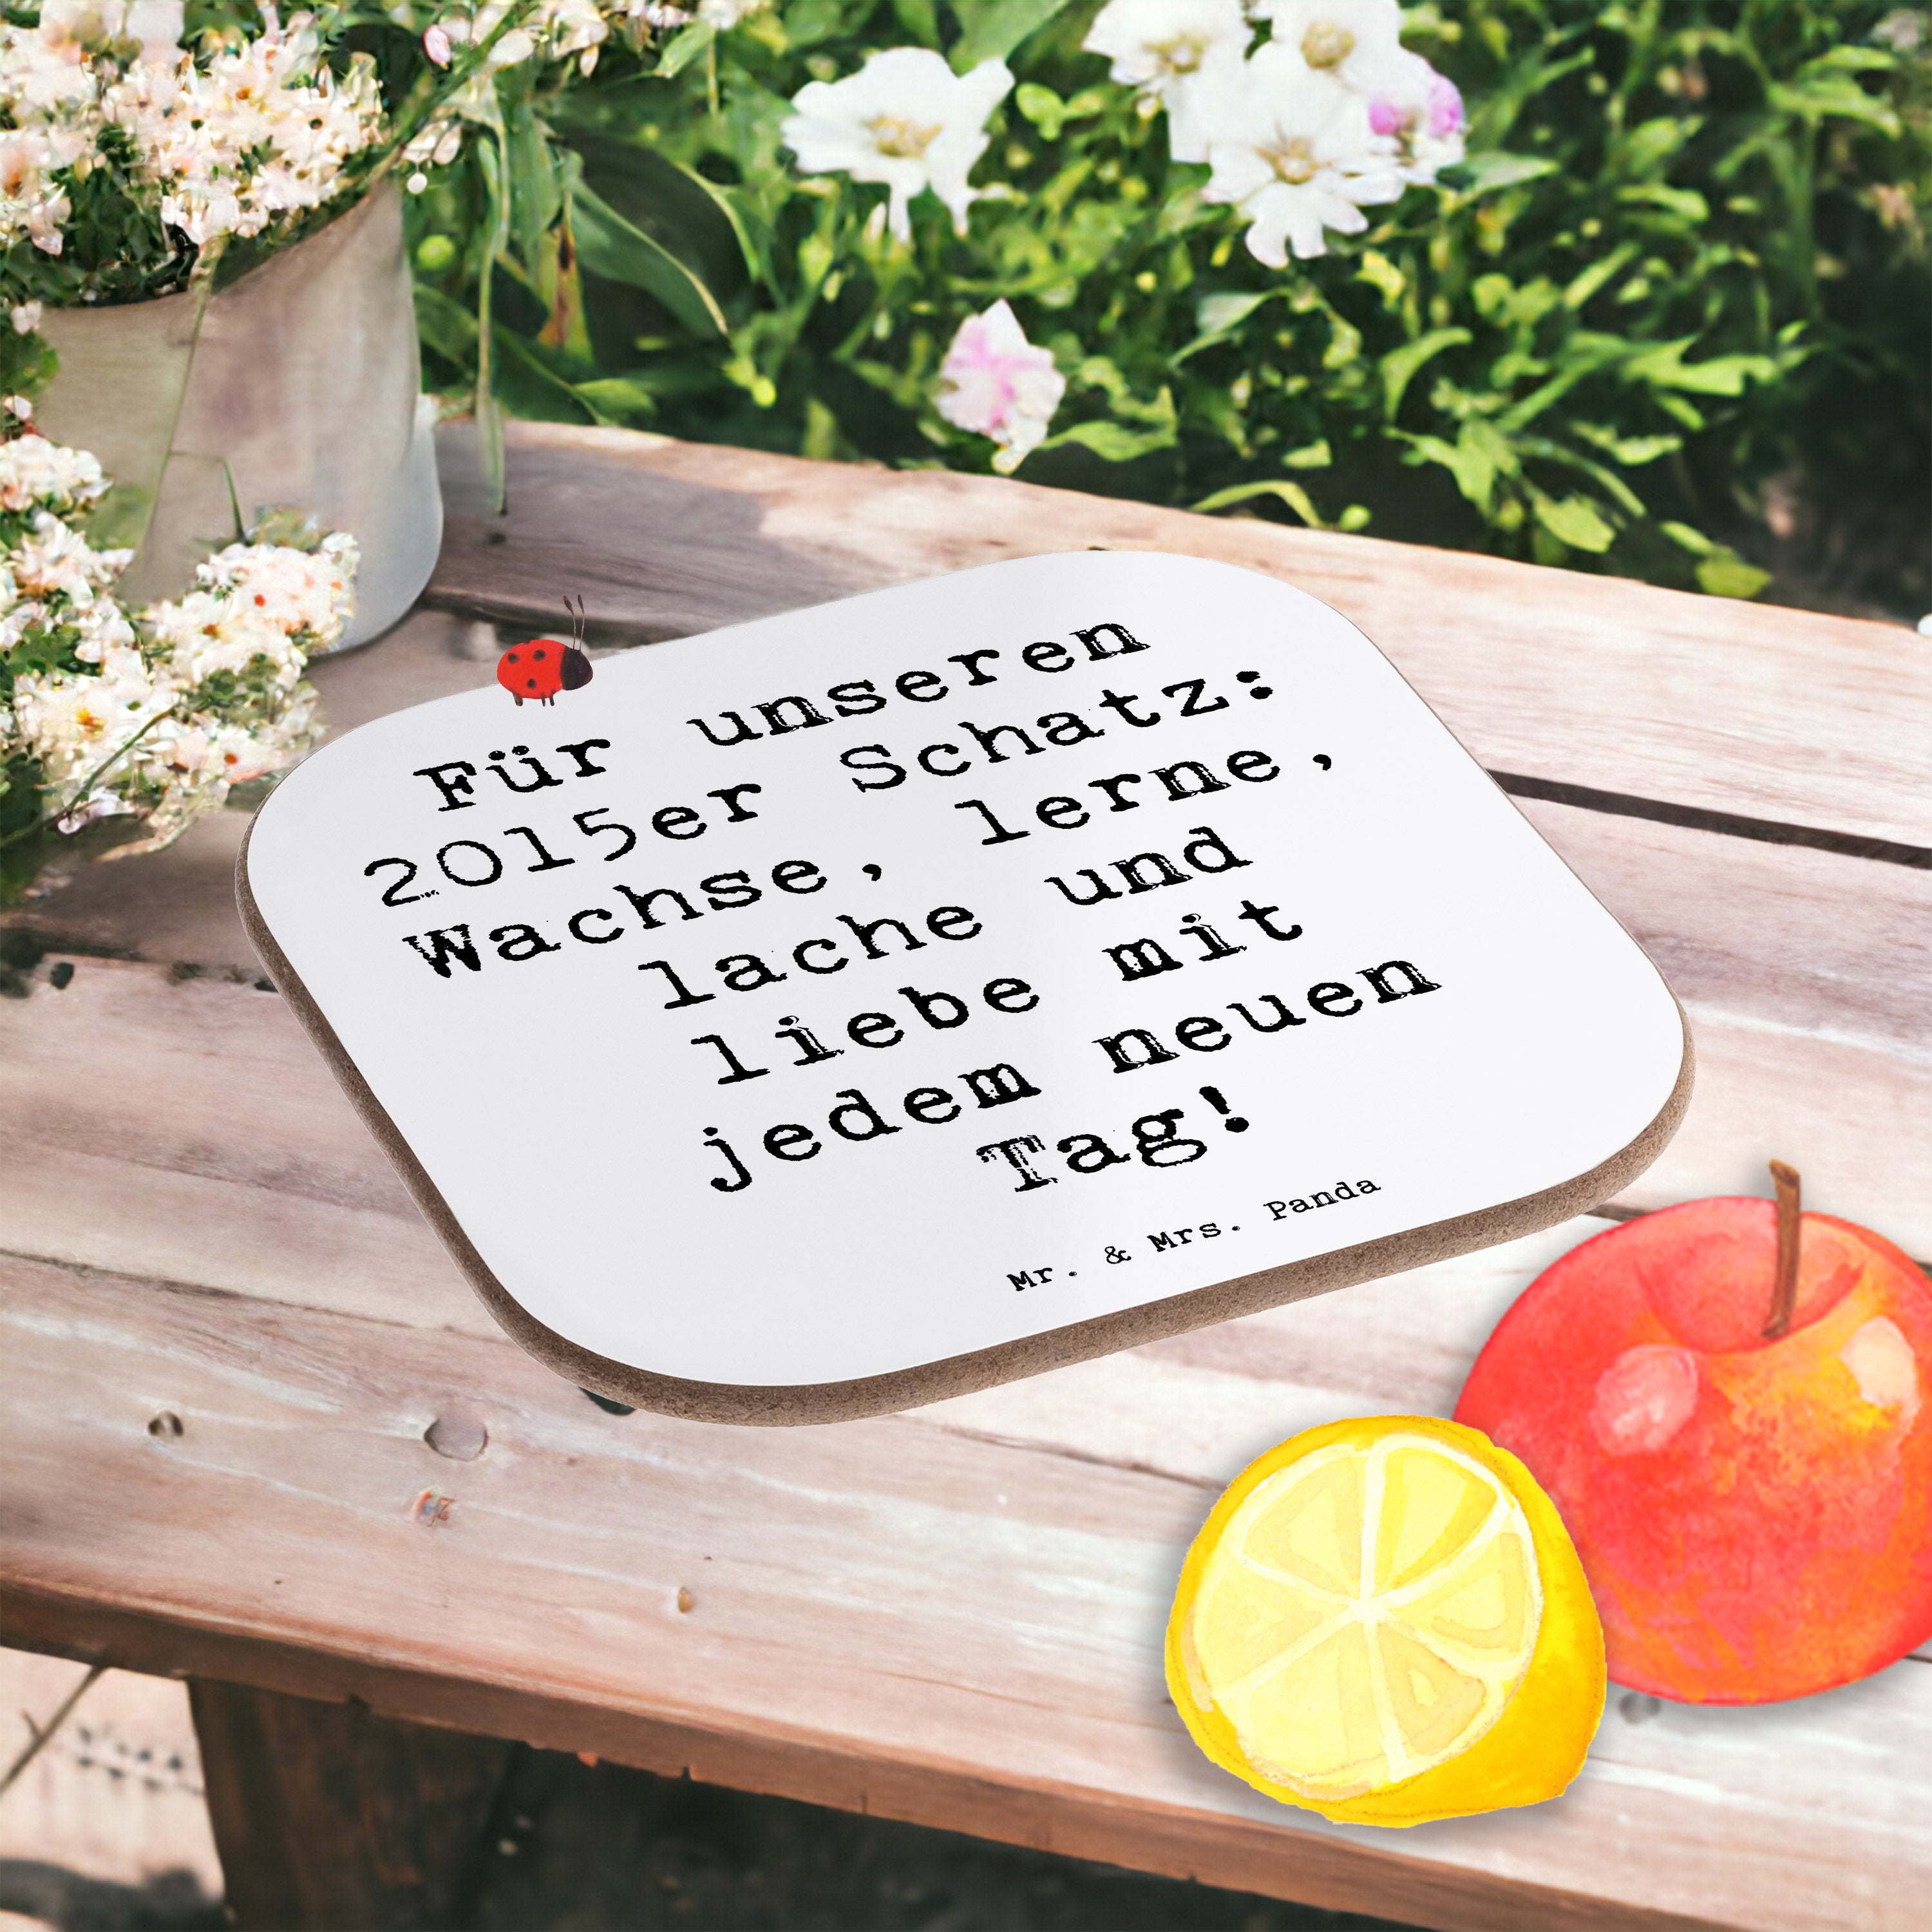 Für unseren
2015er Schatz:
Wachse, lerne,
lache und
liebe mit
jedem neuen
Tag!
Mr. & Mrs. Panda